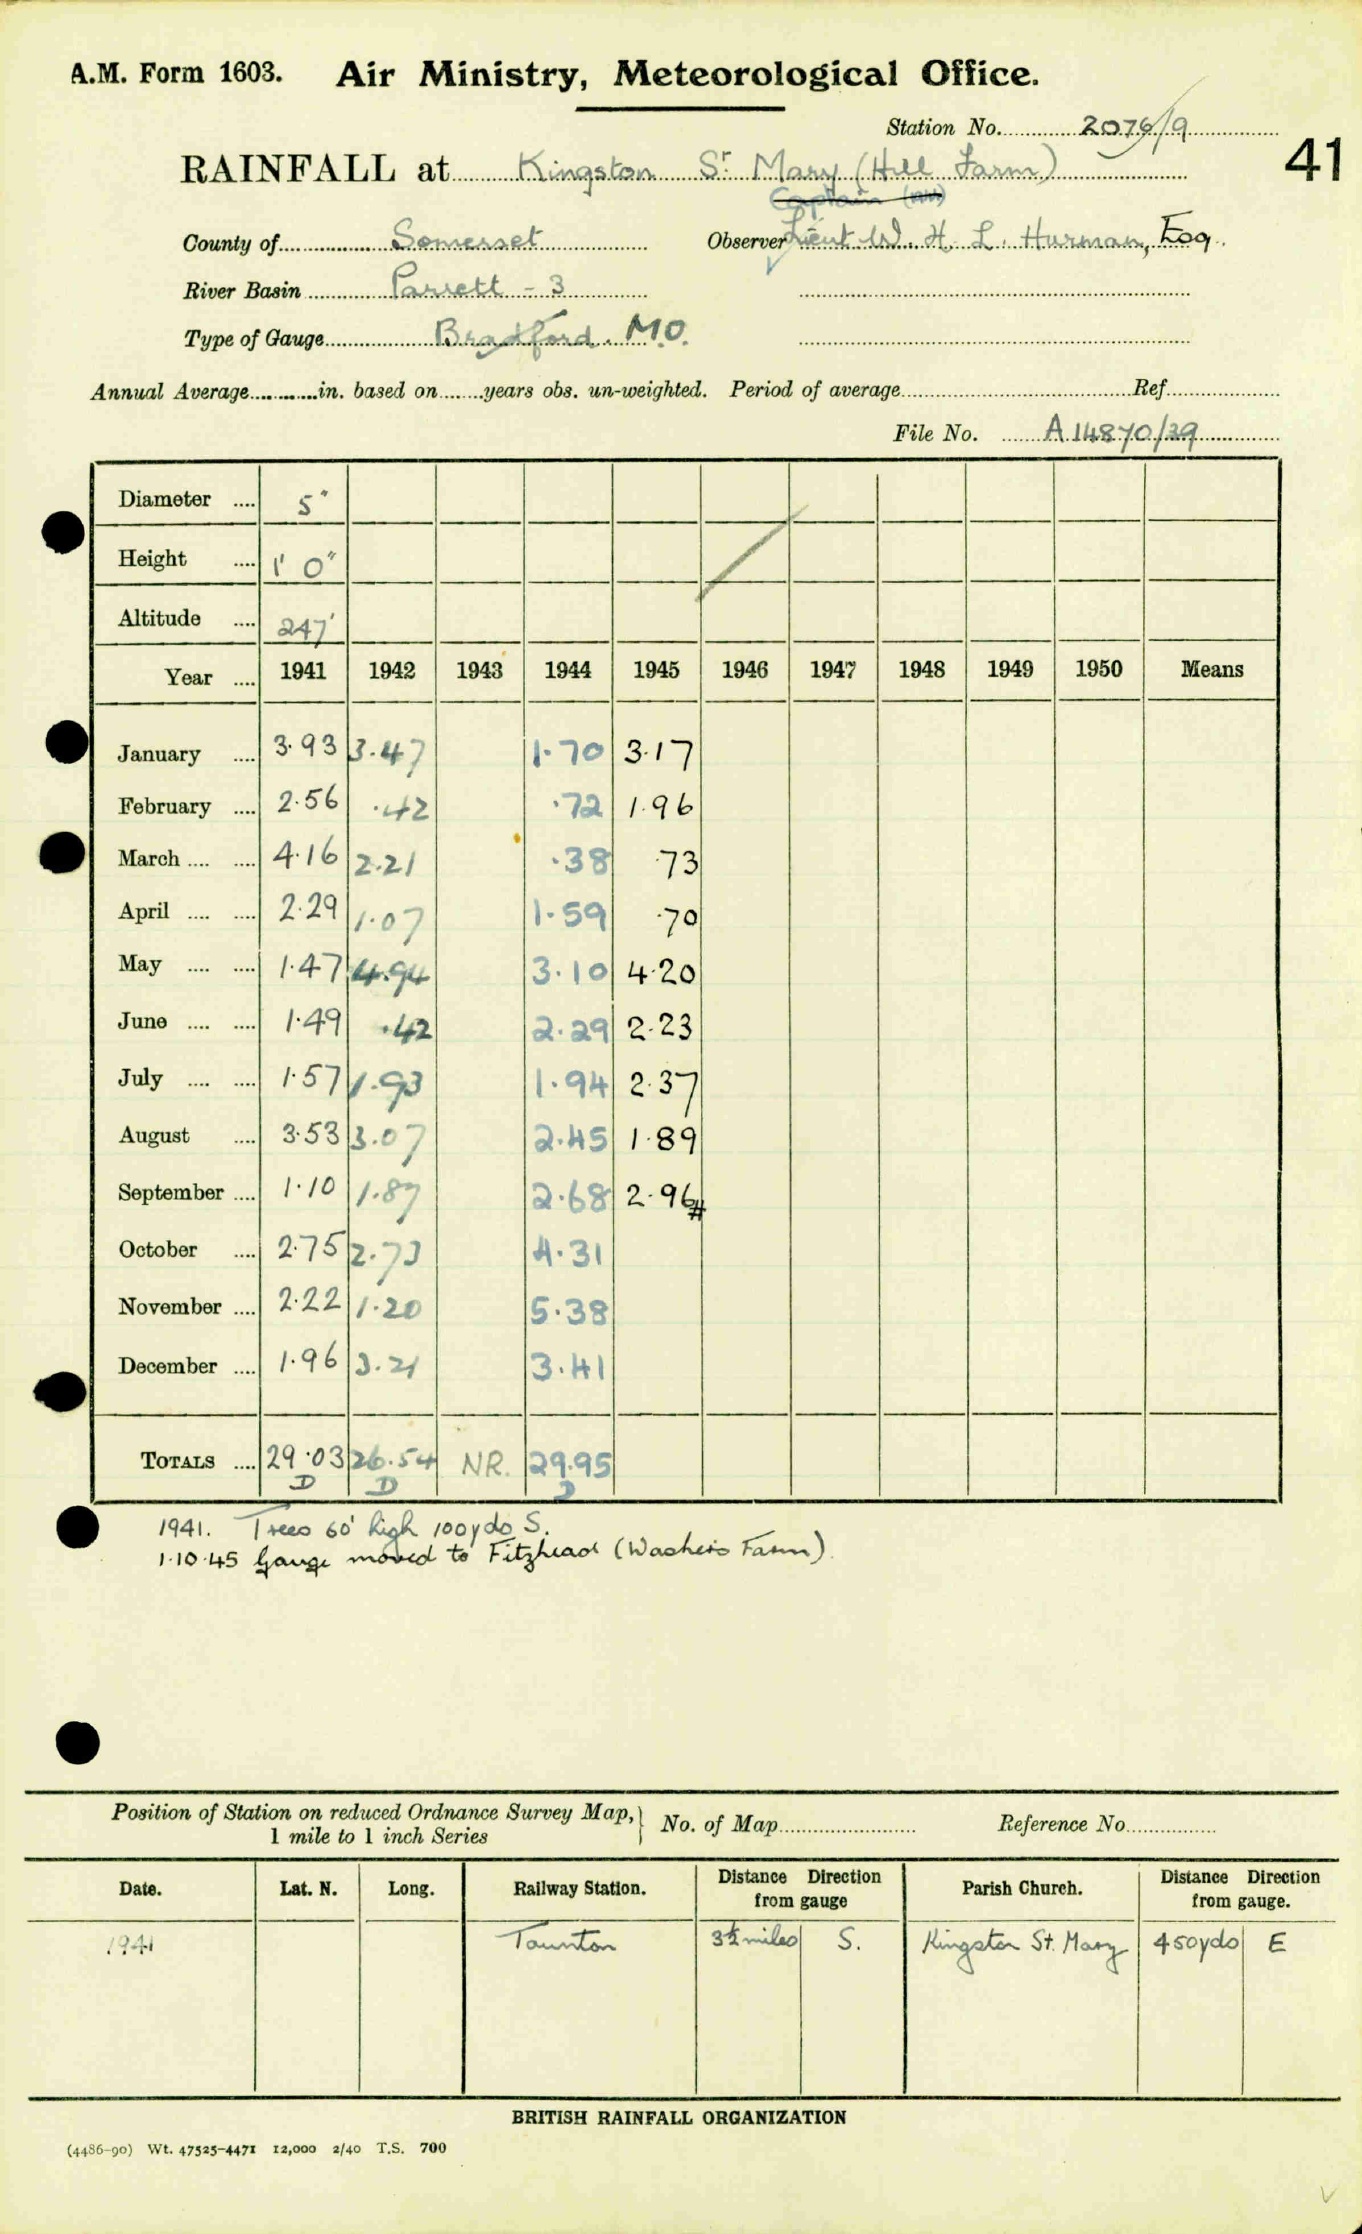 A.M. Form 1603. Air Ministry, Meteorological Office.
Station No. 2076/9
41
RAINFALL at Kingston St Mary (Hill Farm)
Captain
County of Somerset Observer Lieut W. H. L. Hurman, Esq.
River Basin Parrett - 3
Type of Gauge Bradford. M.O.
Annual Average in. based on years obs. un-weighted. Period of average Ref.
File No. A 14870/39
Diameter 5"
Height 1' 0"
Altitude 247'
Year 1941 1942 1943 1944 1945 1946 1947 1948 1949 1950 Means
January 3.93 3.47 1.70 3.17
February 2.56 .42 .72 1.96
March 4.16 2.21 .38 .73
April 2.29 1.07 1.59 .70
May 1.47 4.94 3.10 4.20
June 1.49 .42 2.29 2.23
July 1.57 1.93 1.94 2.37
August 3.53 3.07 2.45 1.89
September 1.10 1.87 2.68 2.96#
October 2.75 2.73 4.31
November 2.22 1.20 5.38
December 1.96 3.21 3.41
TOTALS 29.03 26.54 NR. 29.95
D D D
1941. Trees 60' high 100yds S.
1.10.45 Gauge moved to Fitzhead (Washers Farm)
Position of Station on reduced Ordnance Survey Map, No. of Map Reference No.
1 mile to 1 inch Series
Date. Lat. N. Long. Railway Station. Distance Direction from gauge Parish Church. Distance Direction from gauge.
1941 Taunton 3½ miles S. Kingston St. Mary 450yds E
BRITISH RAINFALL ORGANIZATION
(4486-90) Wt. 47525-4471 12,000 2/40 T.S. 700